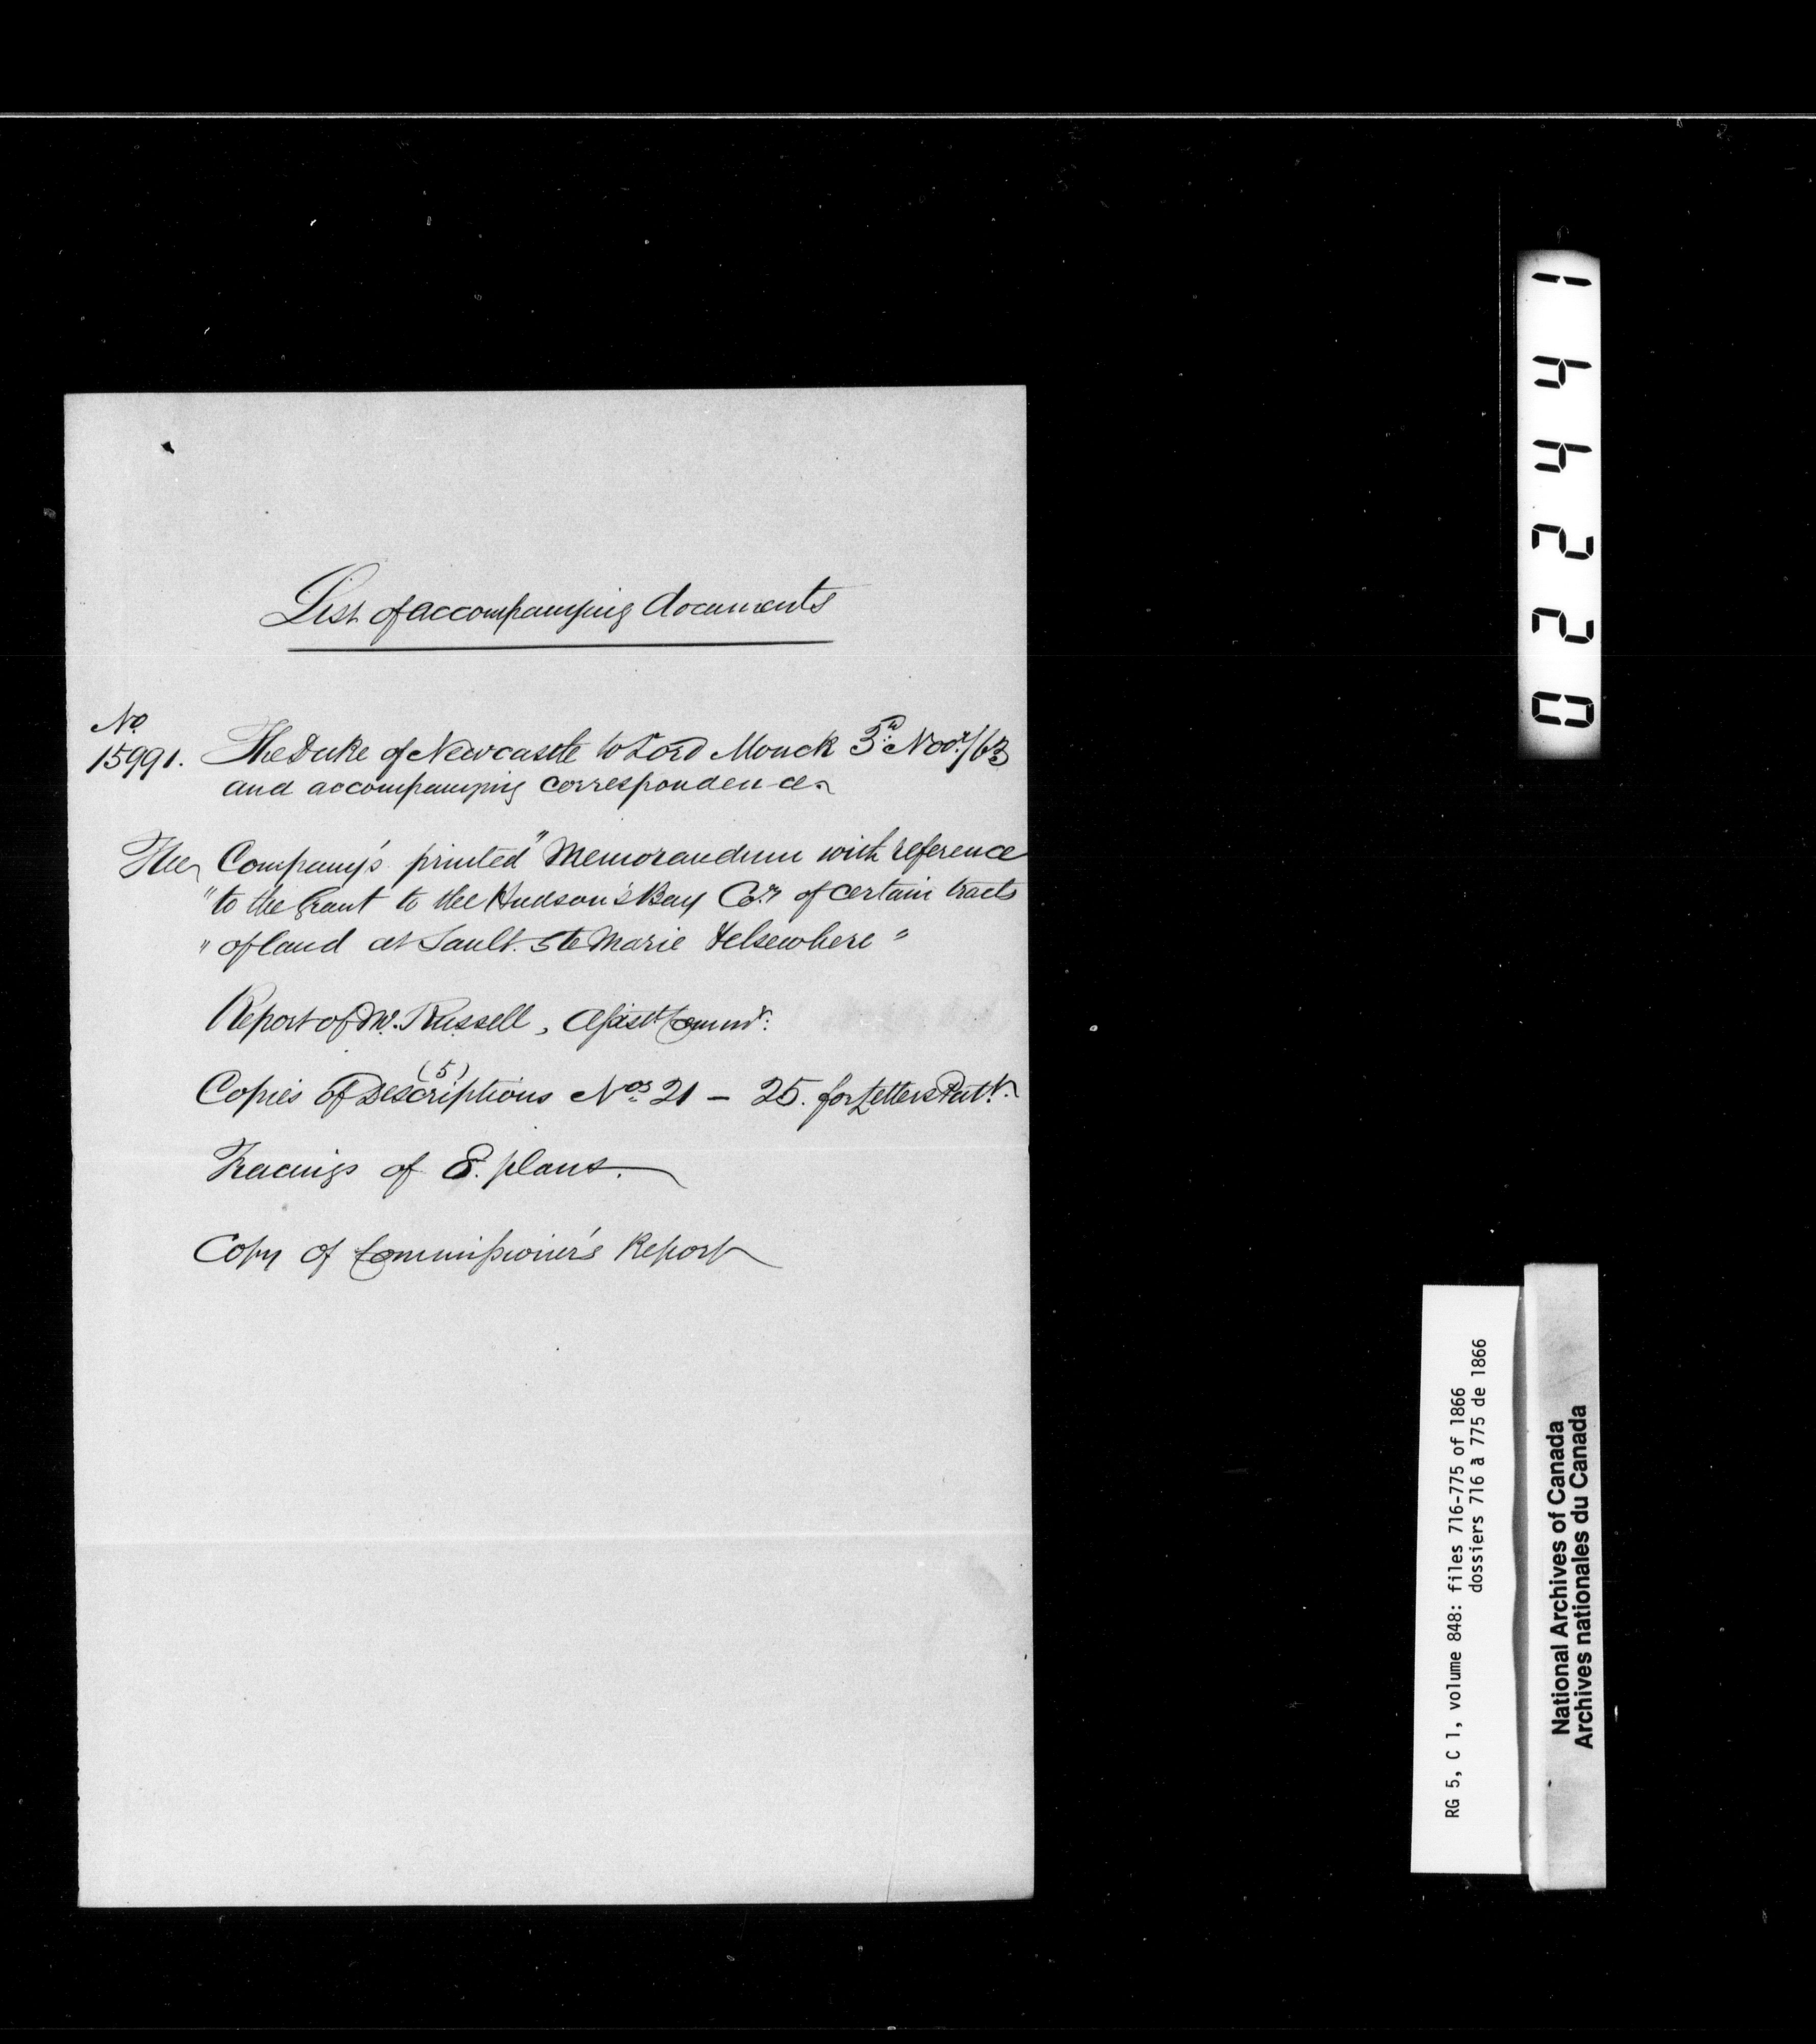 List of accompanying documents
No.
15991. The Duke of Newcastle to Lord Monck 5th Novr/63
and accompanying correspondence
The Company's printed "Memorandum with reference
"to the Grant to the Hudson's Bay Coy of certain tracts
"of land at Sault. Ste Marie & elsewhere"
Report of Mr. Russell, Assistt Commr:
(5)
Copies of Descriptions Nos 21 - 25. for Letters Patt.
Tracings of 8. plans.
Copy of Commissioner's Report
022441
RG 5, C 1, volume 848: files 716-775 of 1866
dossiers 716 à 775 de 1866
National Archives of Canada
Archives nationales du Canada